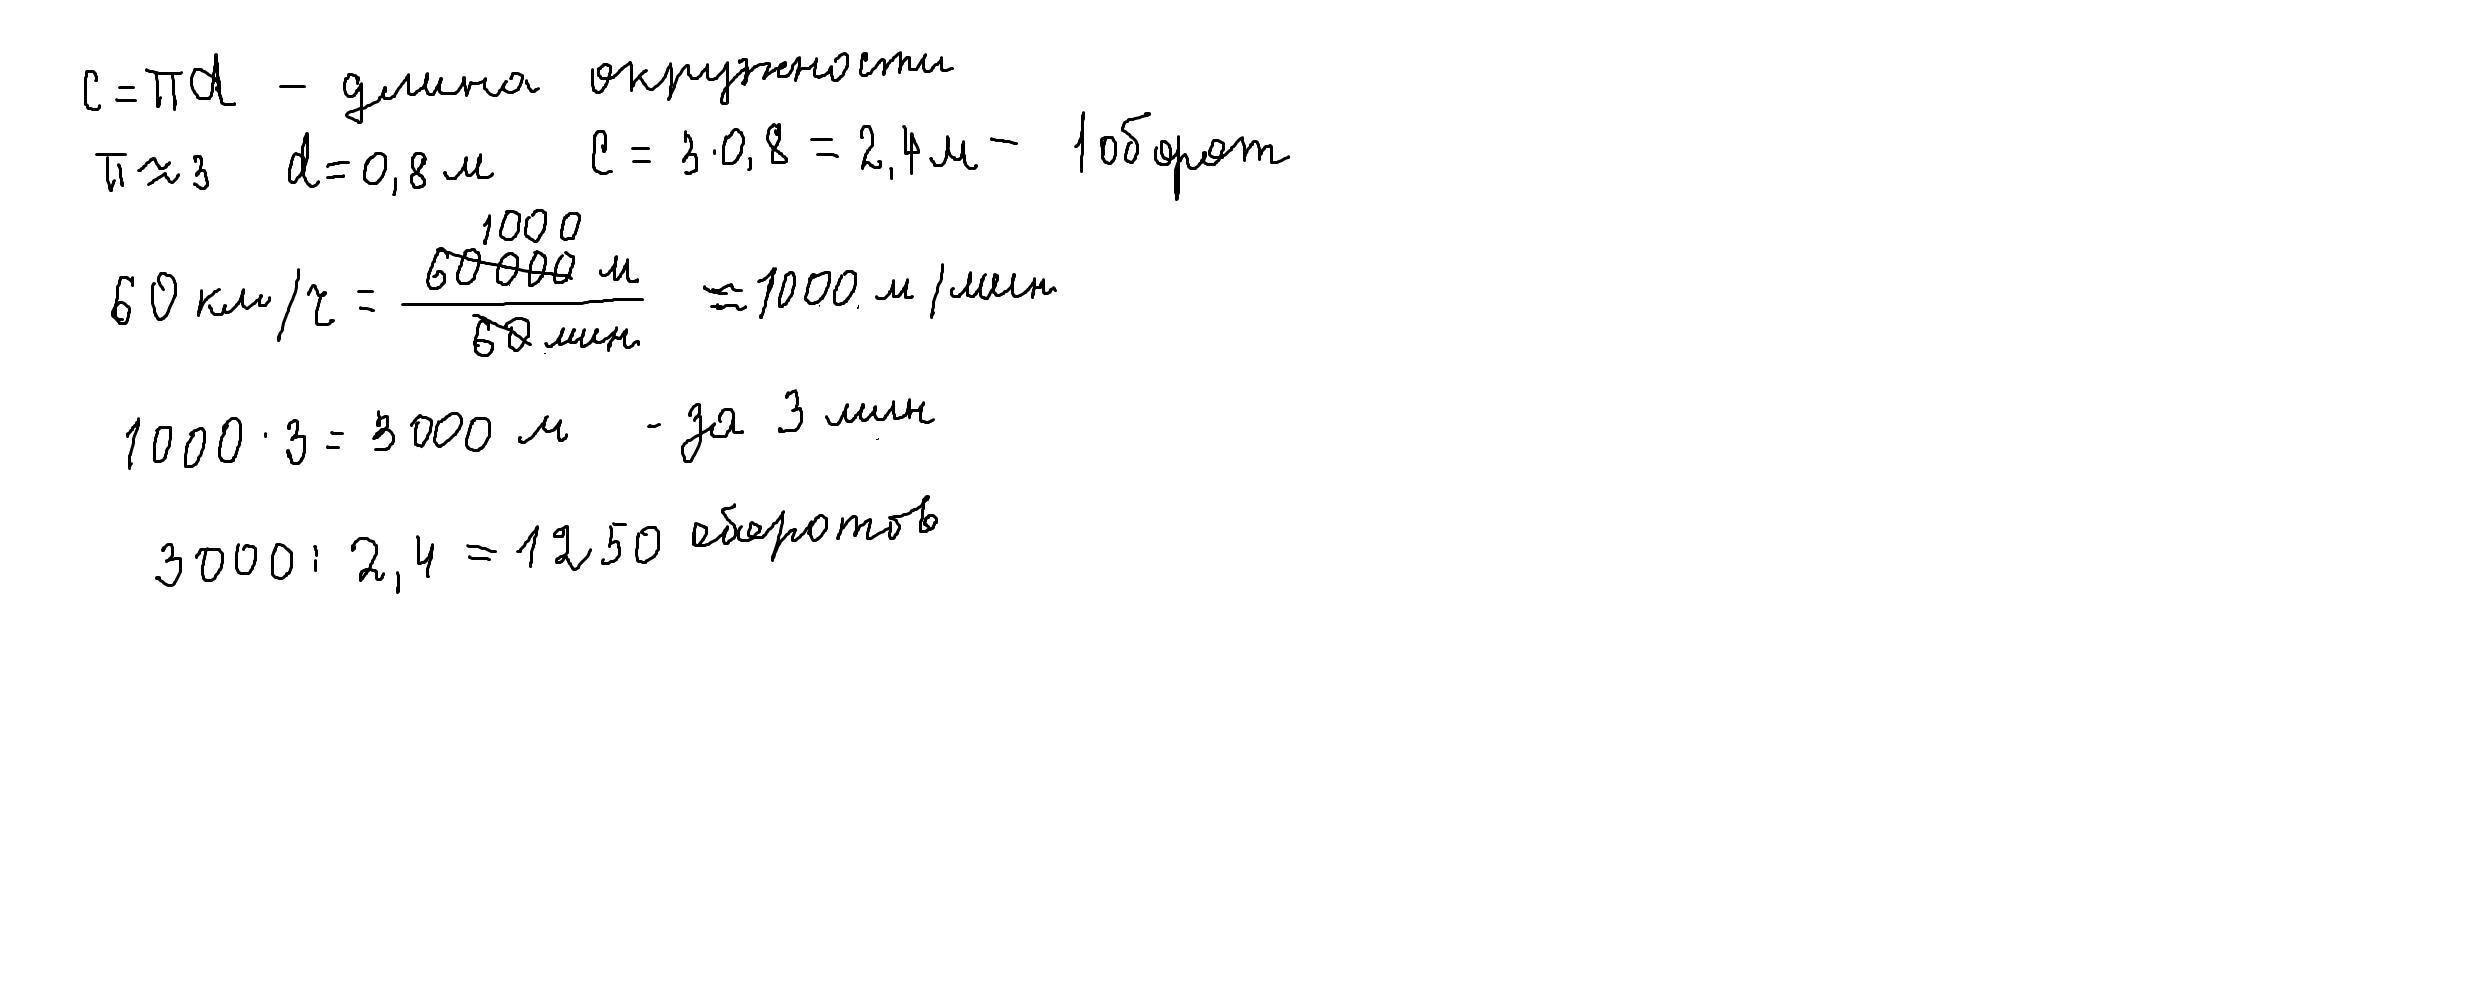 C = πd - длина окружности
π ≈ 3 d = 0,8 м C = 3·0,8 = 2,4 м - 1 оборот
1000
60 км/ч = 60 000 м / 60 мин = 1000 м/мин
1000 · 3 = 3000 м - за 3 мин
3000 : 2,4 = 1250 оборотов